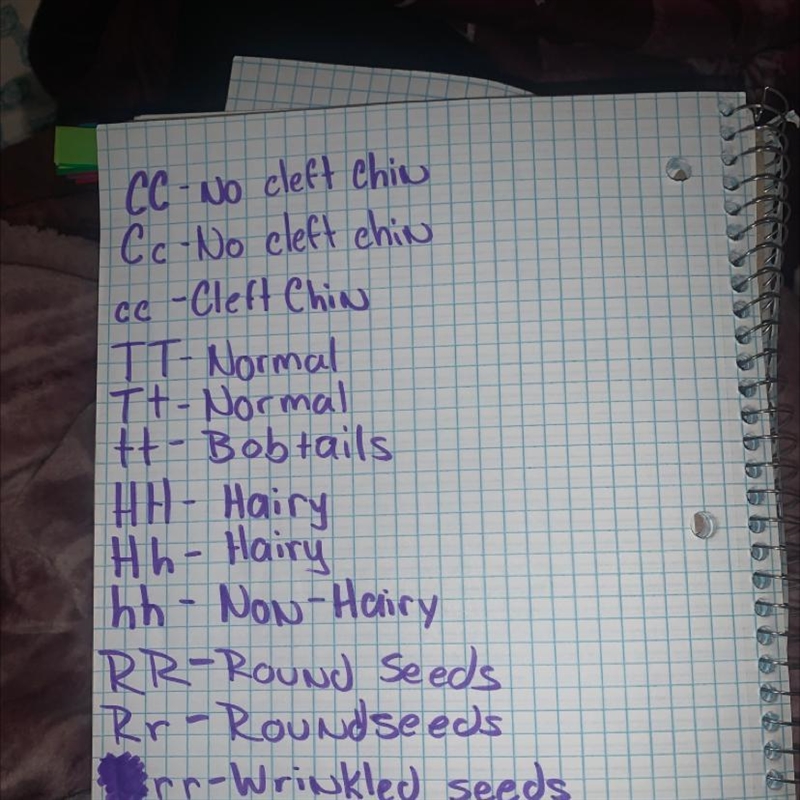 CC - No cleft Chin
Cc - No cleft chin
cc - Cleft Chin
TT - Normal
Tt - Normal
tt - Bobtails
HH - Hairy
Hh - Hairy
hh - Non-Hairy
RR - Round Seeds
Rr - Roundseeds
rr - Wrinkled seeds